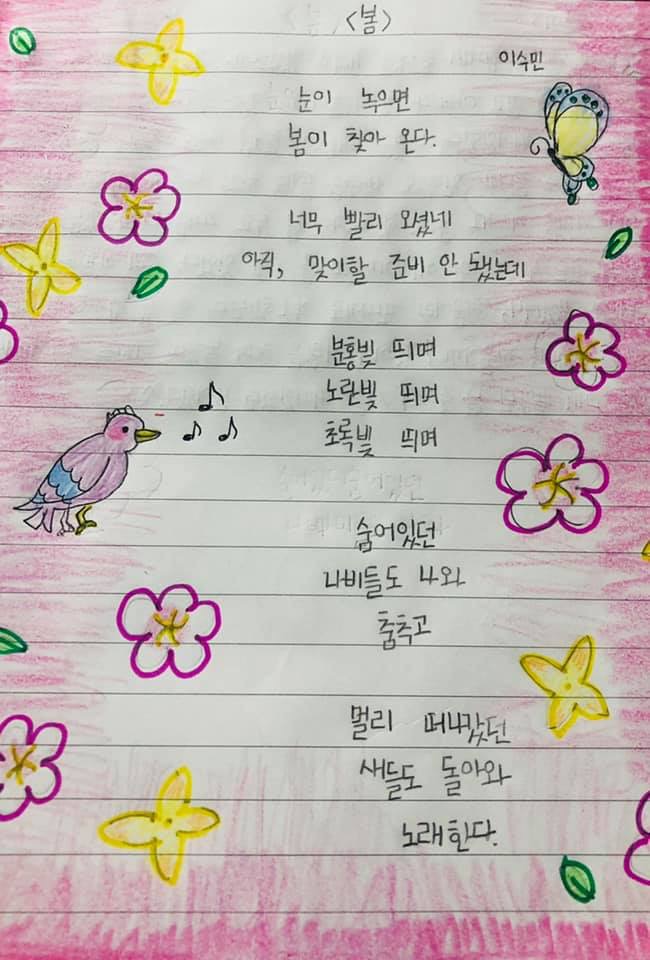 <봄>
이수민
눈이 녹으면
봄이 찾아 온다.
너무 빨리 오셨네
아직, 맞이할 준비 안 됐는데
분홍빛 띄며
노란빛 띄며
초록빛 띄며
숨어있던
나비들도 나와
춤추고
멀리 떠나갔던
새들도 돌아와
노래한다.